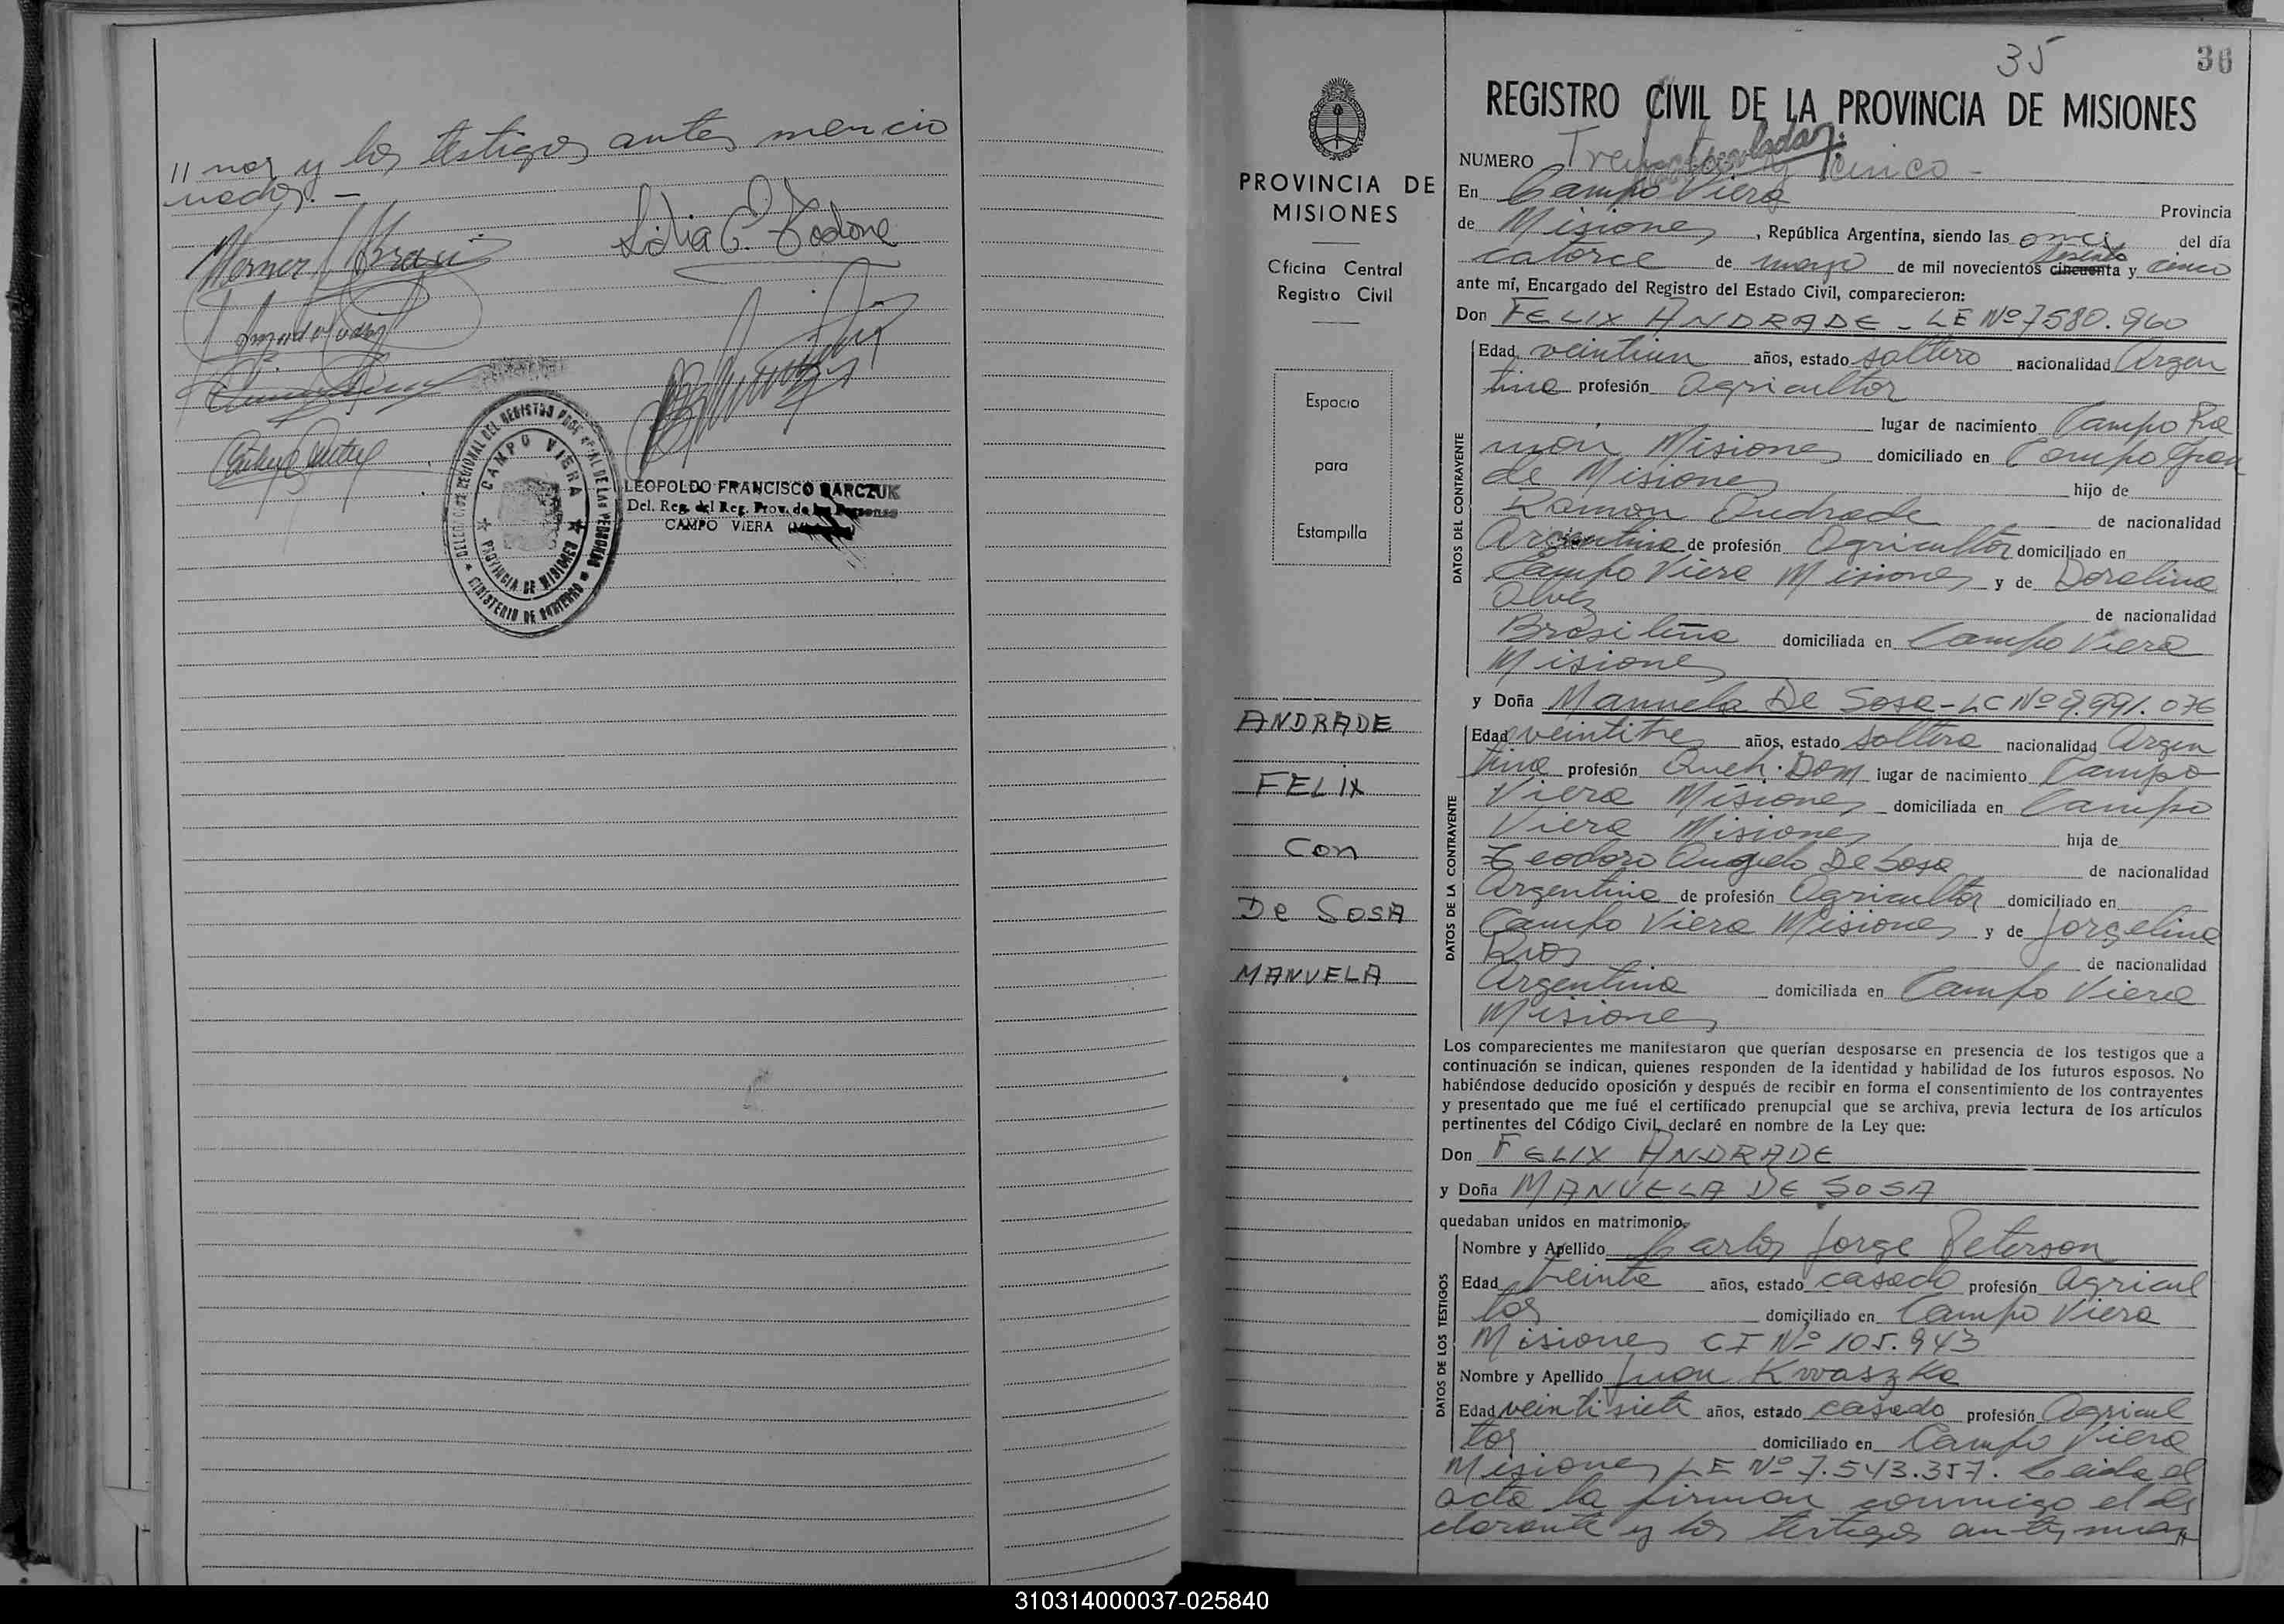 // nos y los testigos antes mencio
nados. —
Lidia C. Zodone
DELEGACION REGIONAL DEL REGISTRO PROVINCIAL DE LAS PERSONAS
CAMPO VIERA
PROVINCIA DE MISIONES
MINISTERIO DE GOBIERNO
LEOPOLDO FRANCISCO BARCZUK
Del. Reg. del Reg. Prov. de las Personas
CAMPO VIERA
35
36
PROVINCIA DE
MISIONES
Oficina Central
Registro Civil
Espacio
para
Estampilla
ANDRADE
FELIX
Con
De SOSA
MANUELA
REGISTRO CIVIL DE LA PROVINCIA DE MISIONES
NUMERO Treinta y cinco -
En Campo Viera Provincia
de Misiones, República Argentina, siendo las once del día
catorce de mayo de mil novecientos cincuenta sesenta y cinco
ante mí, Encargado del Registro del Estado Civil, comparecieron:
Don FELIX ANDRADE - LE Nº 7580.960
DATOS DEL CONTRAYENTE
Edad veintiun años, estado soltero nacionalidad Argen
tina profesión Agricultor
lugar de nacimiento Campo Ra
mon Misiones domiciliado en Campo Gran
de Misiones hijo de
Ramon Andrade de nacionalidad
Argentina de profesión Agricultor domiciliado en
Campo Viera Misiones y de Doralina
Alvez de nacionalidad
Brasileña domiciliada en Campo Viera
Misiones
y Doña Manuela De Sosa - LC Nº 9.991.076
DATOS DE LA CONTRAYENTE
Edad veintitres años, estado soltera nacionalidad Argen
tina profesión Queh. Dom lugar de nacimiento Campo
Viera Misiones domiciliada en Campo
Viera Misiones hija de
Teodoro Angelo De Sosa de nacionalidad
Argentina de profesión Agricultor domiciliado en
Campo Viera Misiones y de Jorgelina
Rios de nacionalidad
Argentina domiciliada en Campo Viera
Misiones
Los comparecientes me manifestaron que querían desposarse en presencia de los testigos que a
continuación se indican, quienes responden de la identidad y habilidad de los futuros esposos. No
habiéndose deducido oposición y después de recibir en forma el consentimiento de los contrayentes
y presentado que me fué el certificado prenupcial que se archiva, previa lectura de los artículos
pertinentes del Código Civil, declaré en nombre de la Ley que:
Don FELIX ANDRADE
y Doña MANUELA DE SOSA
quedaban unidos en matrimonio,
DATOS DE LOS TESTIGOS
Nombre y Apellido Carlos Jorge Peterson
Edad treinta años, estado casado profesión Agricul
tor domiciliado en Campo Viera
Misiones CI Nº 105.943
Nombre y Apellido Juan Kwaszka
Edad veintisiete años, estado casado profesión Agricul
tor domiciliado en Campo Viera
Misiones LE Nº 7.543.357. Leida el
acta la firman conmigo el de
clarante y los testigos antes men
310314000037-025840